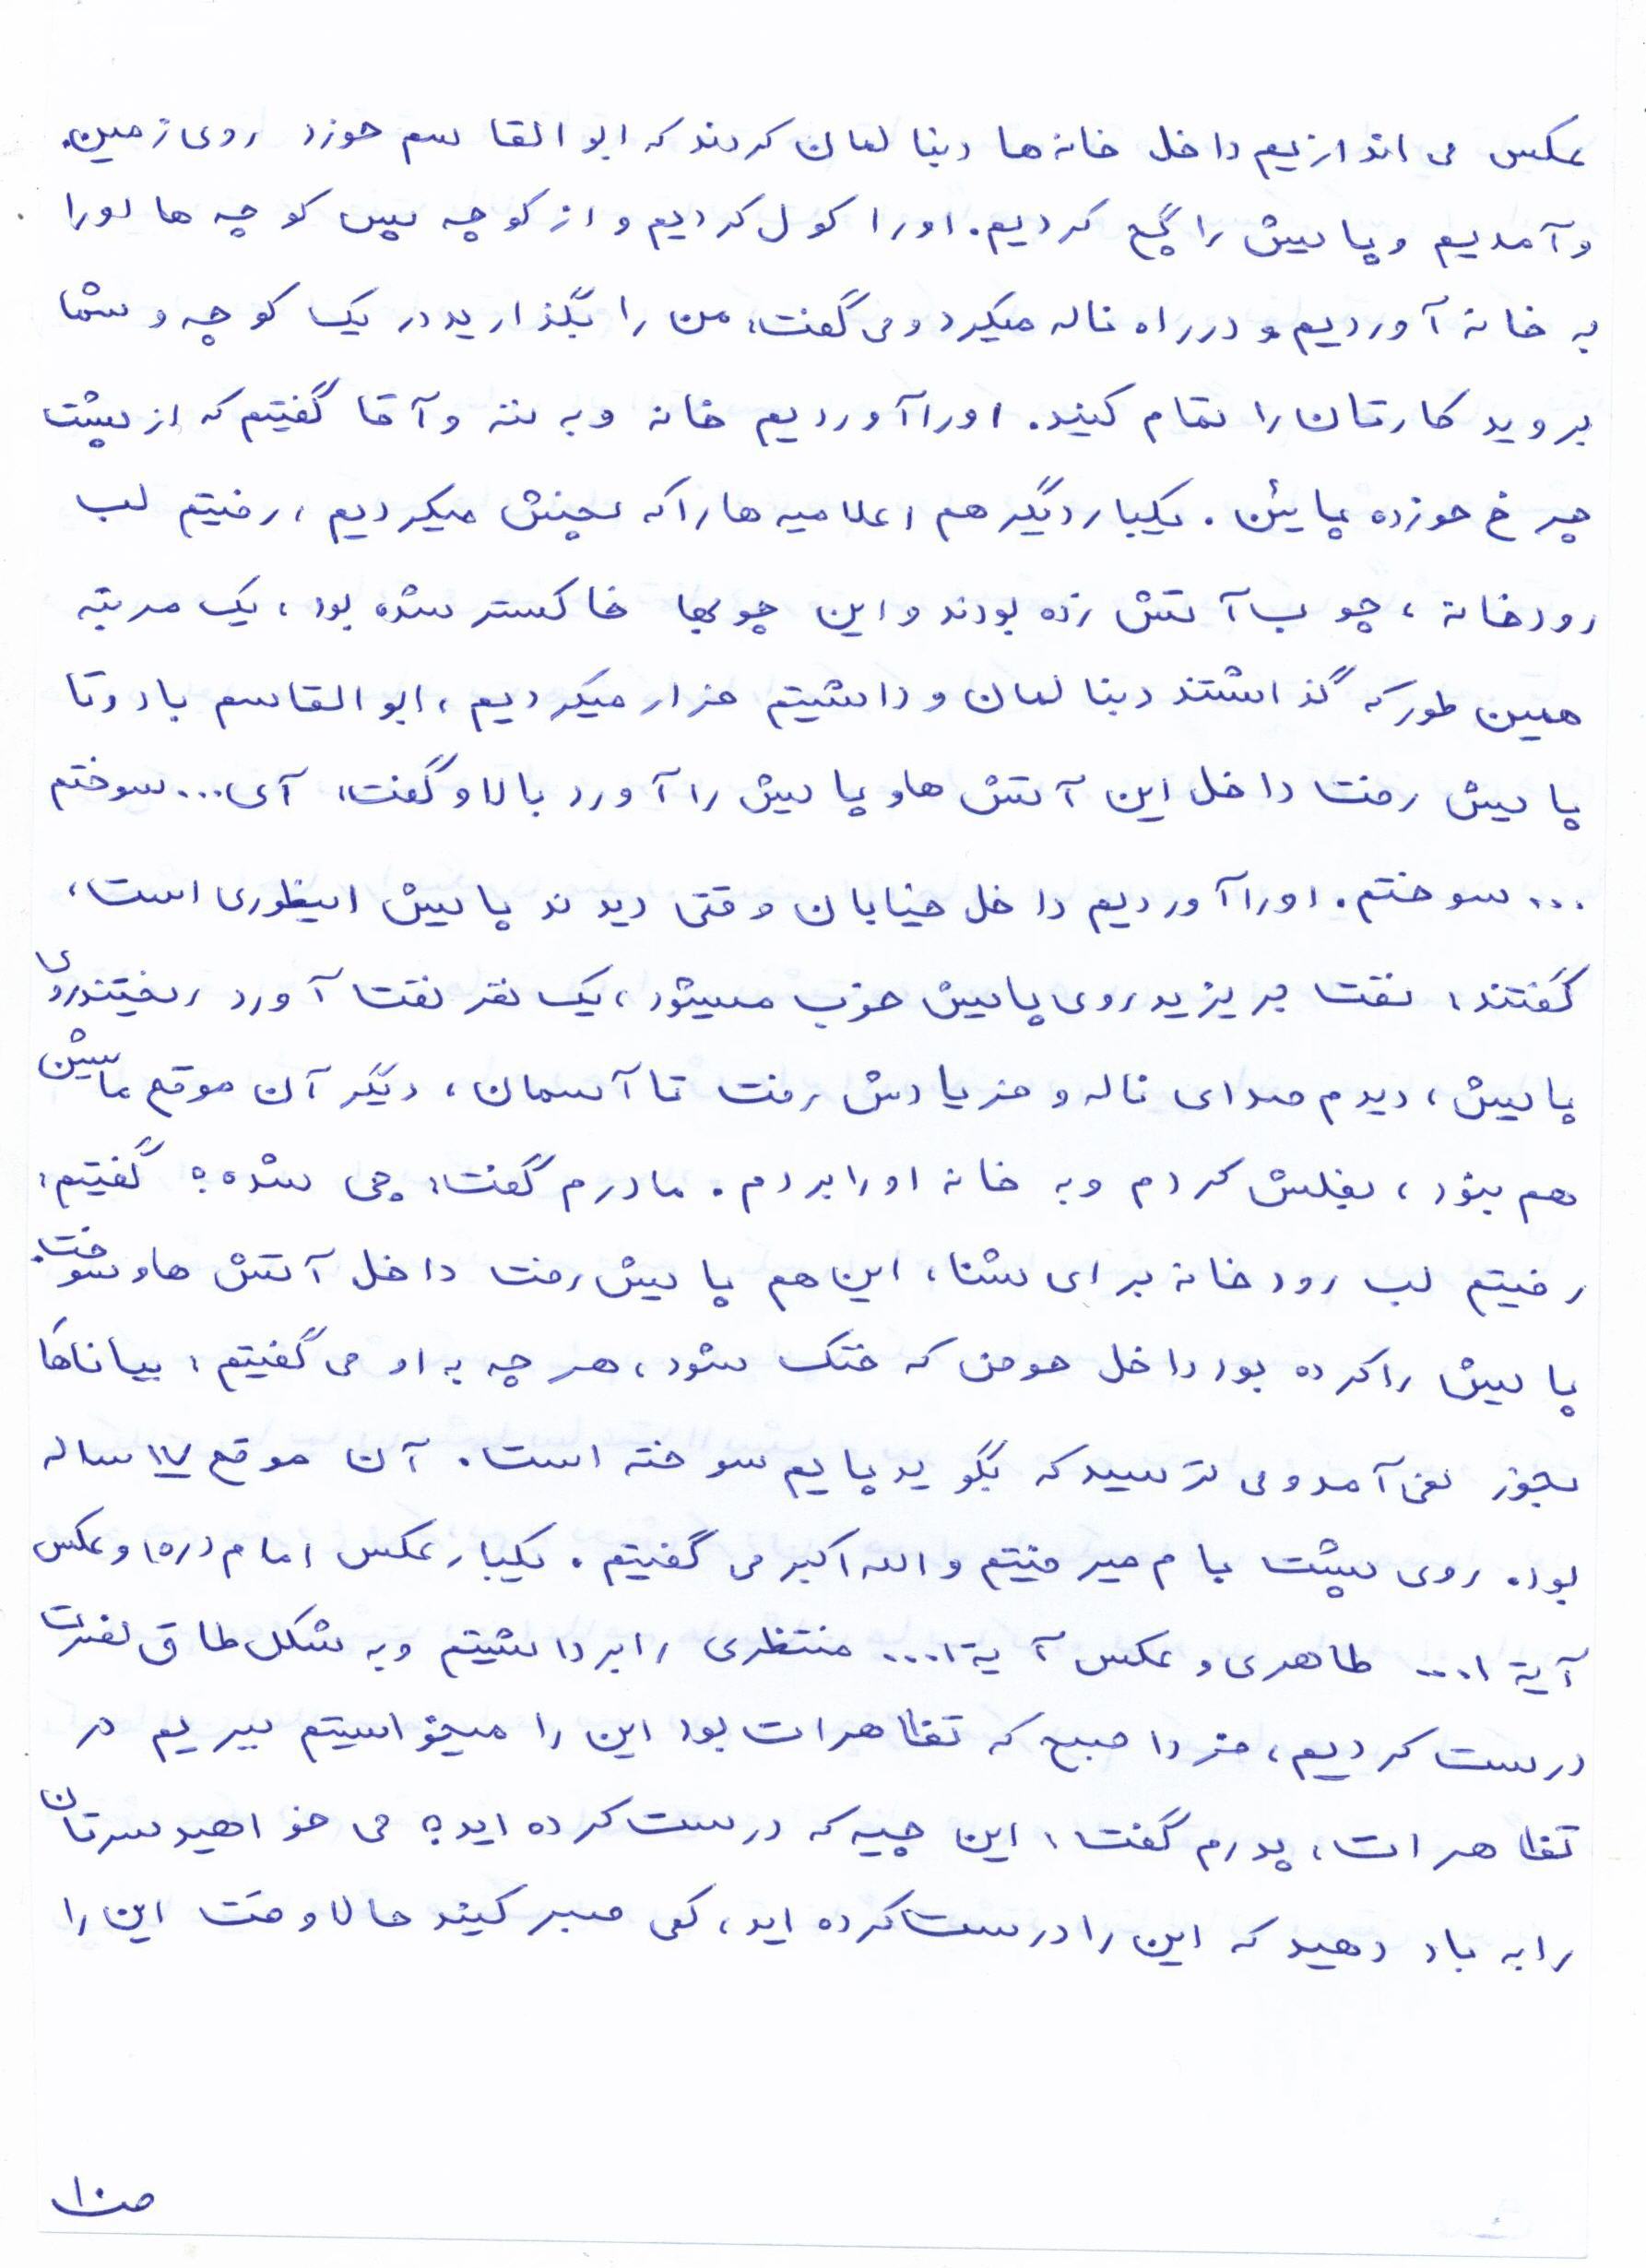 عکس می اندازیم داخل خانه ها دنبالمان کردند که ابوالقاسم خورد روی زمین.
و آمدیم و پایش را گچ کردیم. او را کول کردیم و از کوچه پس کوچه ها او را
به خانه آوردیم و در راه ناله میکرد و می گفت: من را بگذارید در یک کوچه و شما
بروید کارتان را تمام کنید. او را آوردیم خانه و به ننه و آقا گفتیم که از پشت
چرخ خورده پایئن. یکبار دیگر هم اعلامیه ها را که پخش میکردیم، رفتیم لب
رودخانه، چوب آتش زده بودند و این چوبها خاکستر شده بود، یک مرتبه
همین طور که گذاشتند دنبالمان و داشتیم فرار میکردیم، ابوالقاسم با دو تا
پایش رفت داخل این آتش ها و پایش را آورد بالا و گفت: آی... سوختم
... سوختم. او را آوردیم داخل خیابان وقتی دیدند پایش اینطوری است،
گفتند: نفت بریزید روی پایش خوب میشود، یک نفر نفت آورد ریختند روی
پایش، دیدم صدای ناله و فریادش رفت تا آسمان، دیگر آن موقع ماشین
هم نبود، بغلش کردم و به خانه او را بردم. مادرم گفت: چی شده؟ گفتیم:
رفتیم لب رودخانه برای شنا، این هم پایش رفت داخل آتش ها و سوخت.
پایش را کرده بود داخل حوض که خنک شود، هر چه به او می گفتیم: بیا ناها
بخور نمی آمد و می ترسید که بگوید پایم سوخته است. آن موقع ۱۷ ساله
بود. روی پشت بام میرفتیم و الله اکبر می گفتیم. یکبار عکس امام (ره) و عکس
آیة ا... طاهری و عکس آیة ا... منتظری را برداشتیم و به شکل طاق نصرت
درست کردیم، فردا صبح که تظاهرات بود این را میخواستیم ببریم در
تظاهرات، پدرم گفت: این چیه که درست کرده اید؟ می خواهید سرتان
را به باد دهید که این را درست کرده اید، کمی صبر کنید حالا وقت این را
ص۱۰